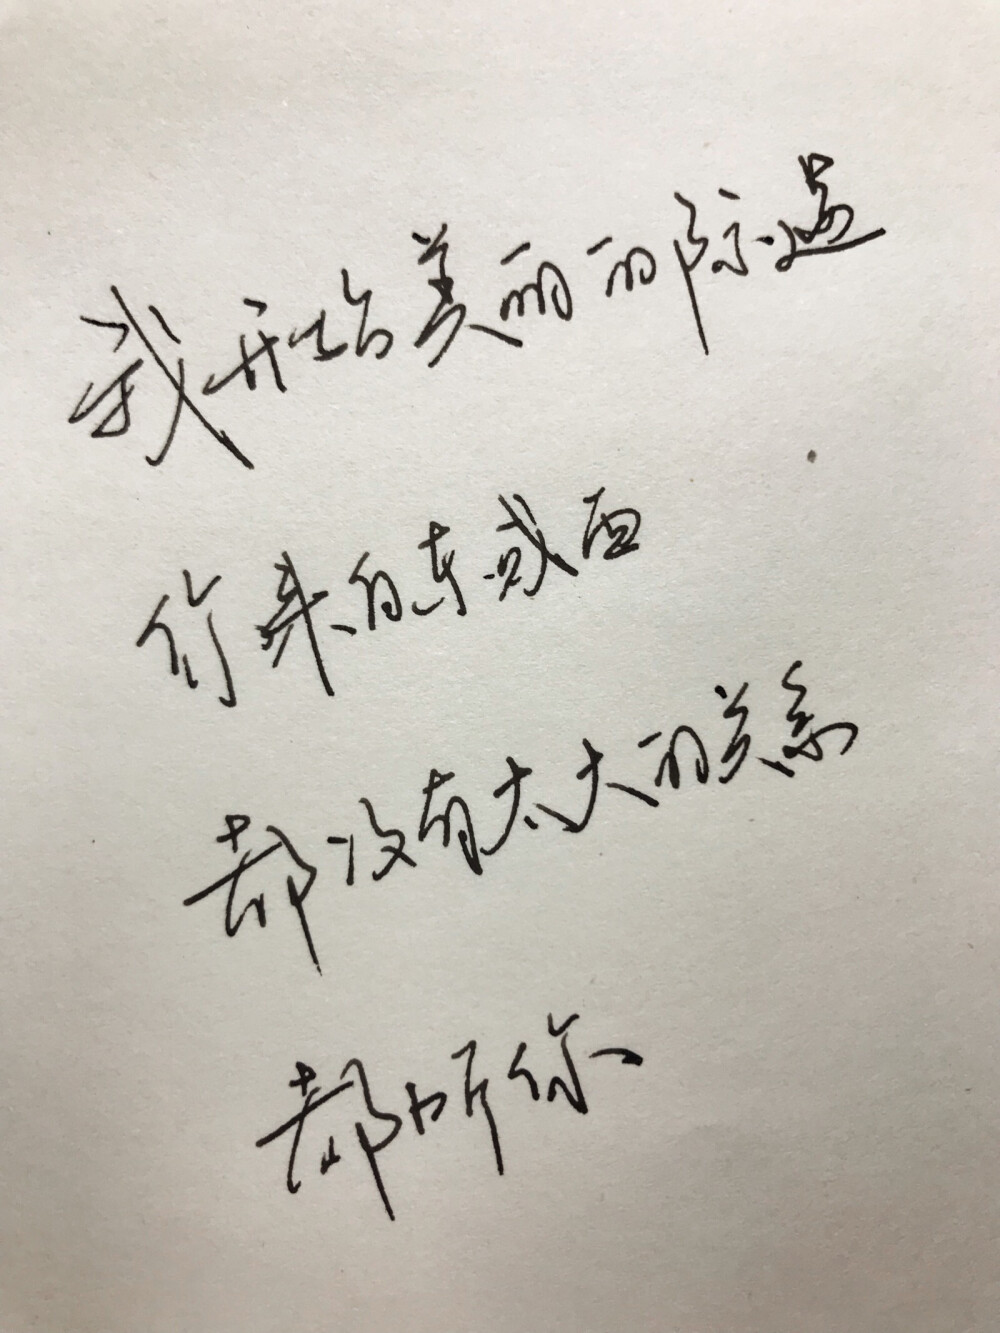 我开始美丽的际遇
你来的东或西
都没有太大的关系
都听你